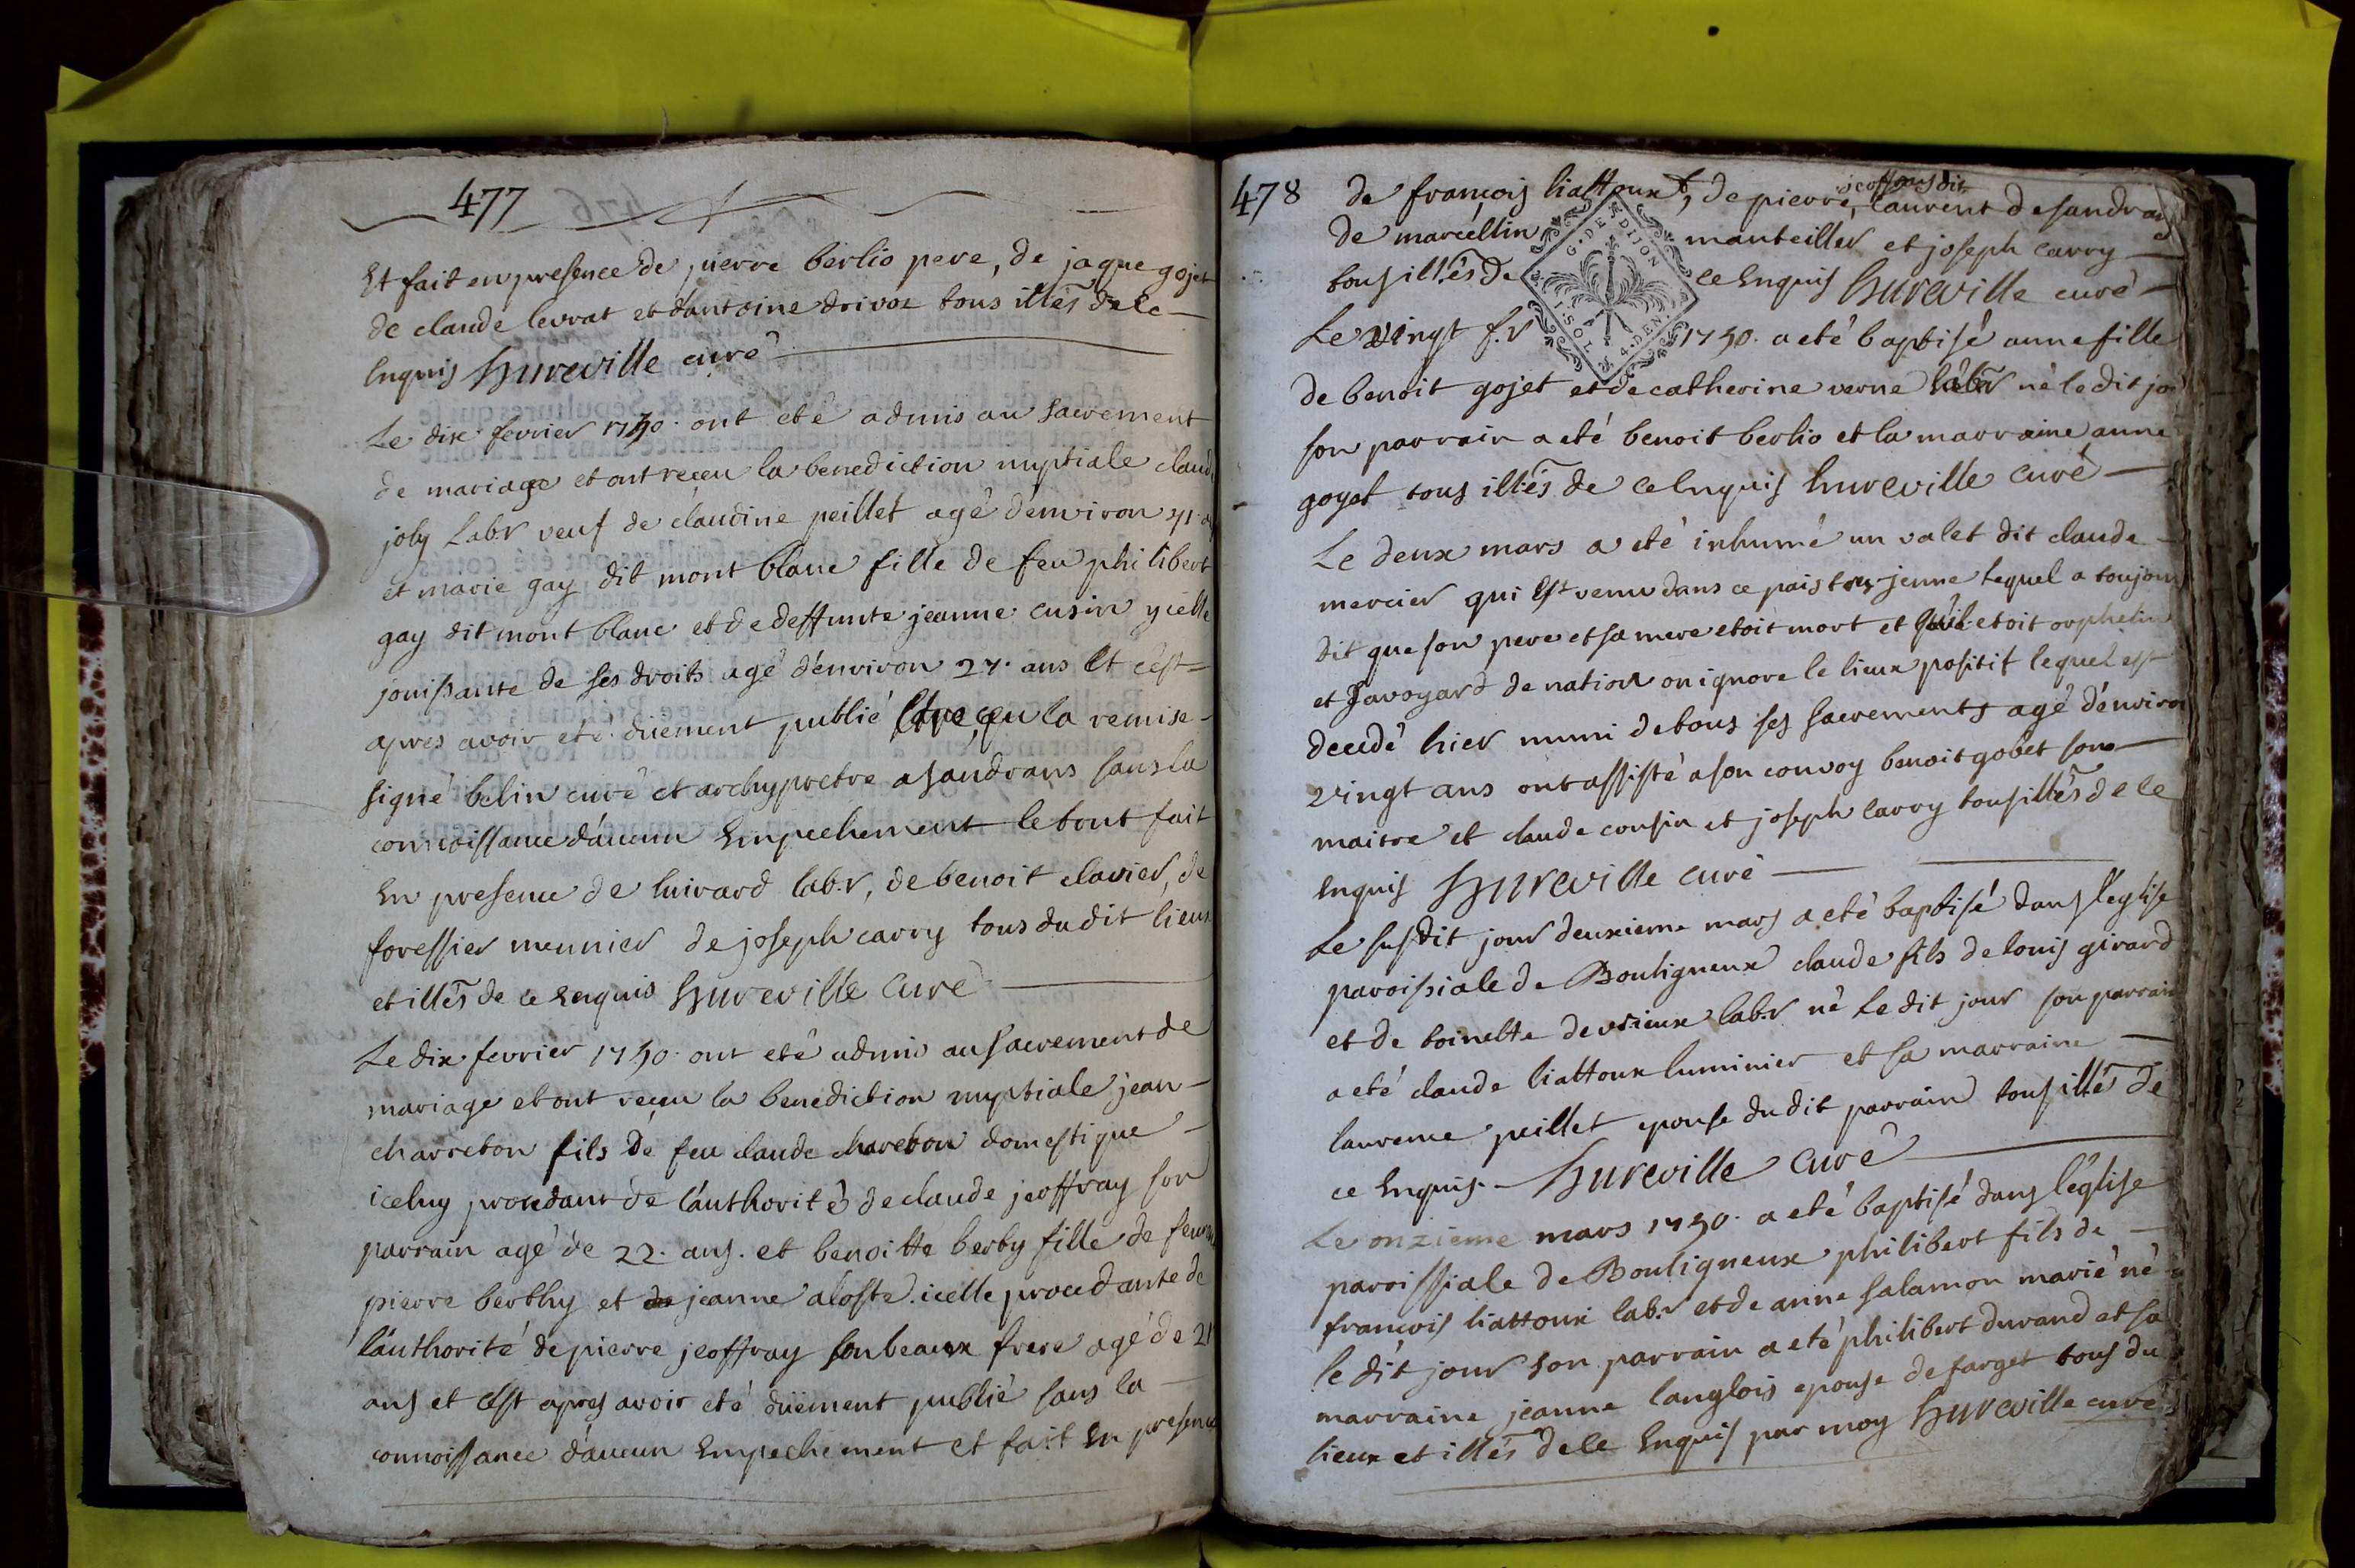 477
Et fait en presence de pierre berlio pere, de jaque gojet
de claude levrat et dantoine drivoz tous illés de ce
Enquis hureville curé
Le dix fevrier 1750. ont eté admis au sacrement
de mariage et ont reçeu la benediction nuptiale claud
joly Lab.r veuf de claudine peillet agé d'environ 41
et marie gay dit mont blanc fille de feu philibert
gay dit mont blanc et de deffunte jeanne cusin yielle
jouissante de ses droits agé d'environ 27. ans Et c'est
apres avoir eté düement publié la remise
signé belin curé et archypretre a sandrans sans la
connoissance d'aucun Empechement le tout fait
En presence de luivard lab.r, de benoit clavier, de
foressier meunier de joseph carry tous du dit lieux
et illés de ce Enquis hureville Curé
Le dix fevrier 1750. ont eté admis au sacrement de
mariage et ont reçeu la benediction nuptiale jean
charreton fils de feu claude chareton domestique
iceluy procedant de l'authorité de claude jeoffray son
parrain agé de 22. ans. et benoitte berty fille de feu
pierre berthy et jeanne aloste. icelle procedante de
l'authorité de pierre jeoffray son beaux frere agé de 21
ans et c'est apres avoir eté düement publié sans la
connoissance d'aucun Empechement et fait En presence
478
de françois liattoux, de pierre, jeoffray dit laurent de sandrans
de marcellin manteiller et joseph carry
tous illés de ce Enquis hureville curé
G. DE DIJON
1. SOL 4. DEN.
Le vingt f.r 1750. a eté baptisé anne fille
de benoit gojet et de catherine verne lab.r né le dit jou
son parrain a eté benoit berlio et la marraine anne
goyet tous illés de ce Enquis hureville curé
Le deux mars a eté inhumé un valet dit claude
mercier qui est venu dans ce pais tres jeune lequel a toujour
dit que son pere et sa mere etoit mort et qu'il etoit orphelin
et savoyard de nation on ignore le lieux positif lequel est
decedé hier muni de tous ses sacrements agé d'environ
vingt ans ont assisté a son convoy benoit gobet son
maitre et claude cousin et joseph carry tous illés de ce
Enquis hureville curé
Le susdit jour deuxieme mars a eté baptisé dans l'eglise
paroissiale de Bouligneux claude fils de louis girard
et de toinette devrieux lab.r né Le dit jour son parrain
a eté claude liattoux luminier et sa marraine
laurence peillet epouse du dit parrain tous illés de
ce Enquis. hureville curé
Le onzieme mars 1750. a eté baptisé dans l'eglise
paroissiale de Bouligneux philibert fils de
françois liattoux lab.r et de anne salamon marié né
le dit jour son parrain a eté philibert durand et sa
marraine jeanne langlois epouse de farget tous du
lieux et illés de ce Enquis par moy hureville curé